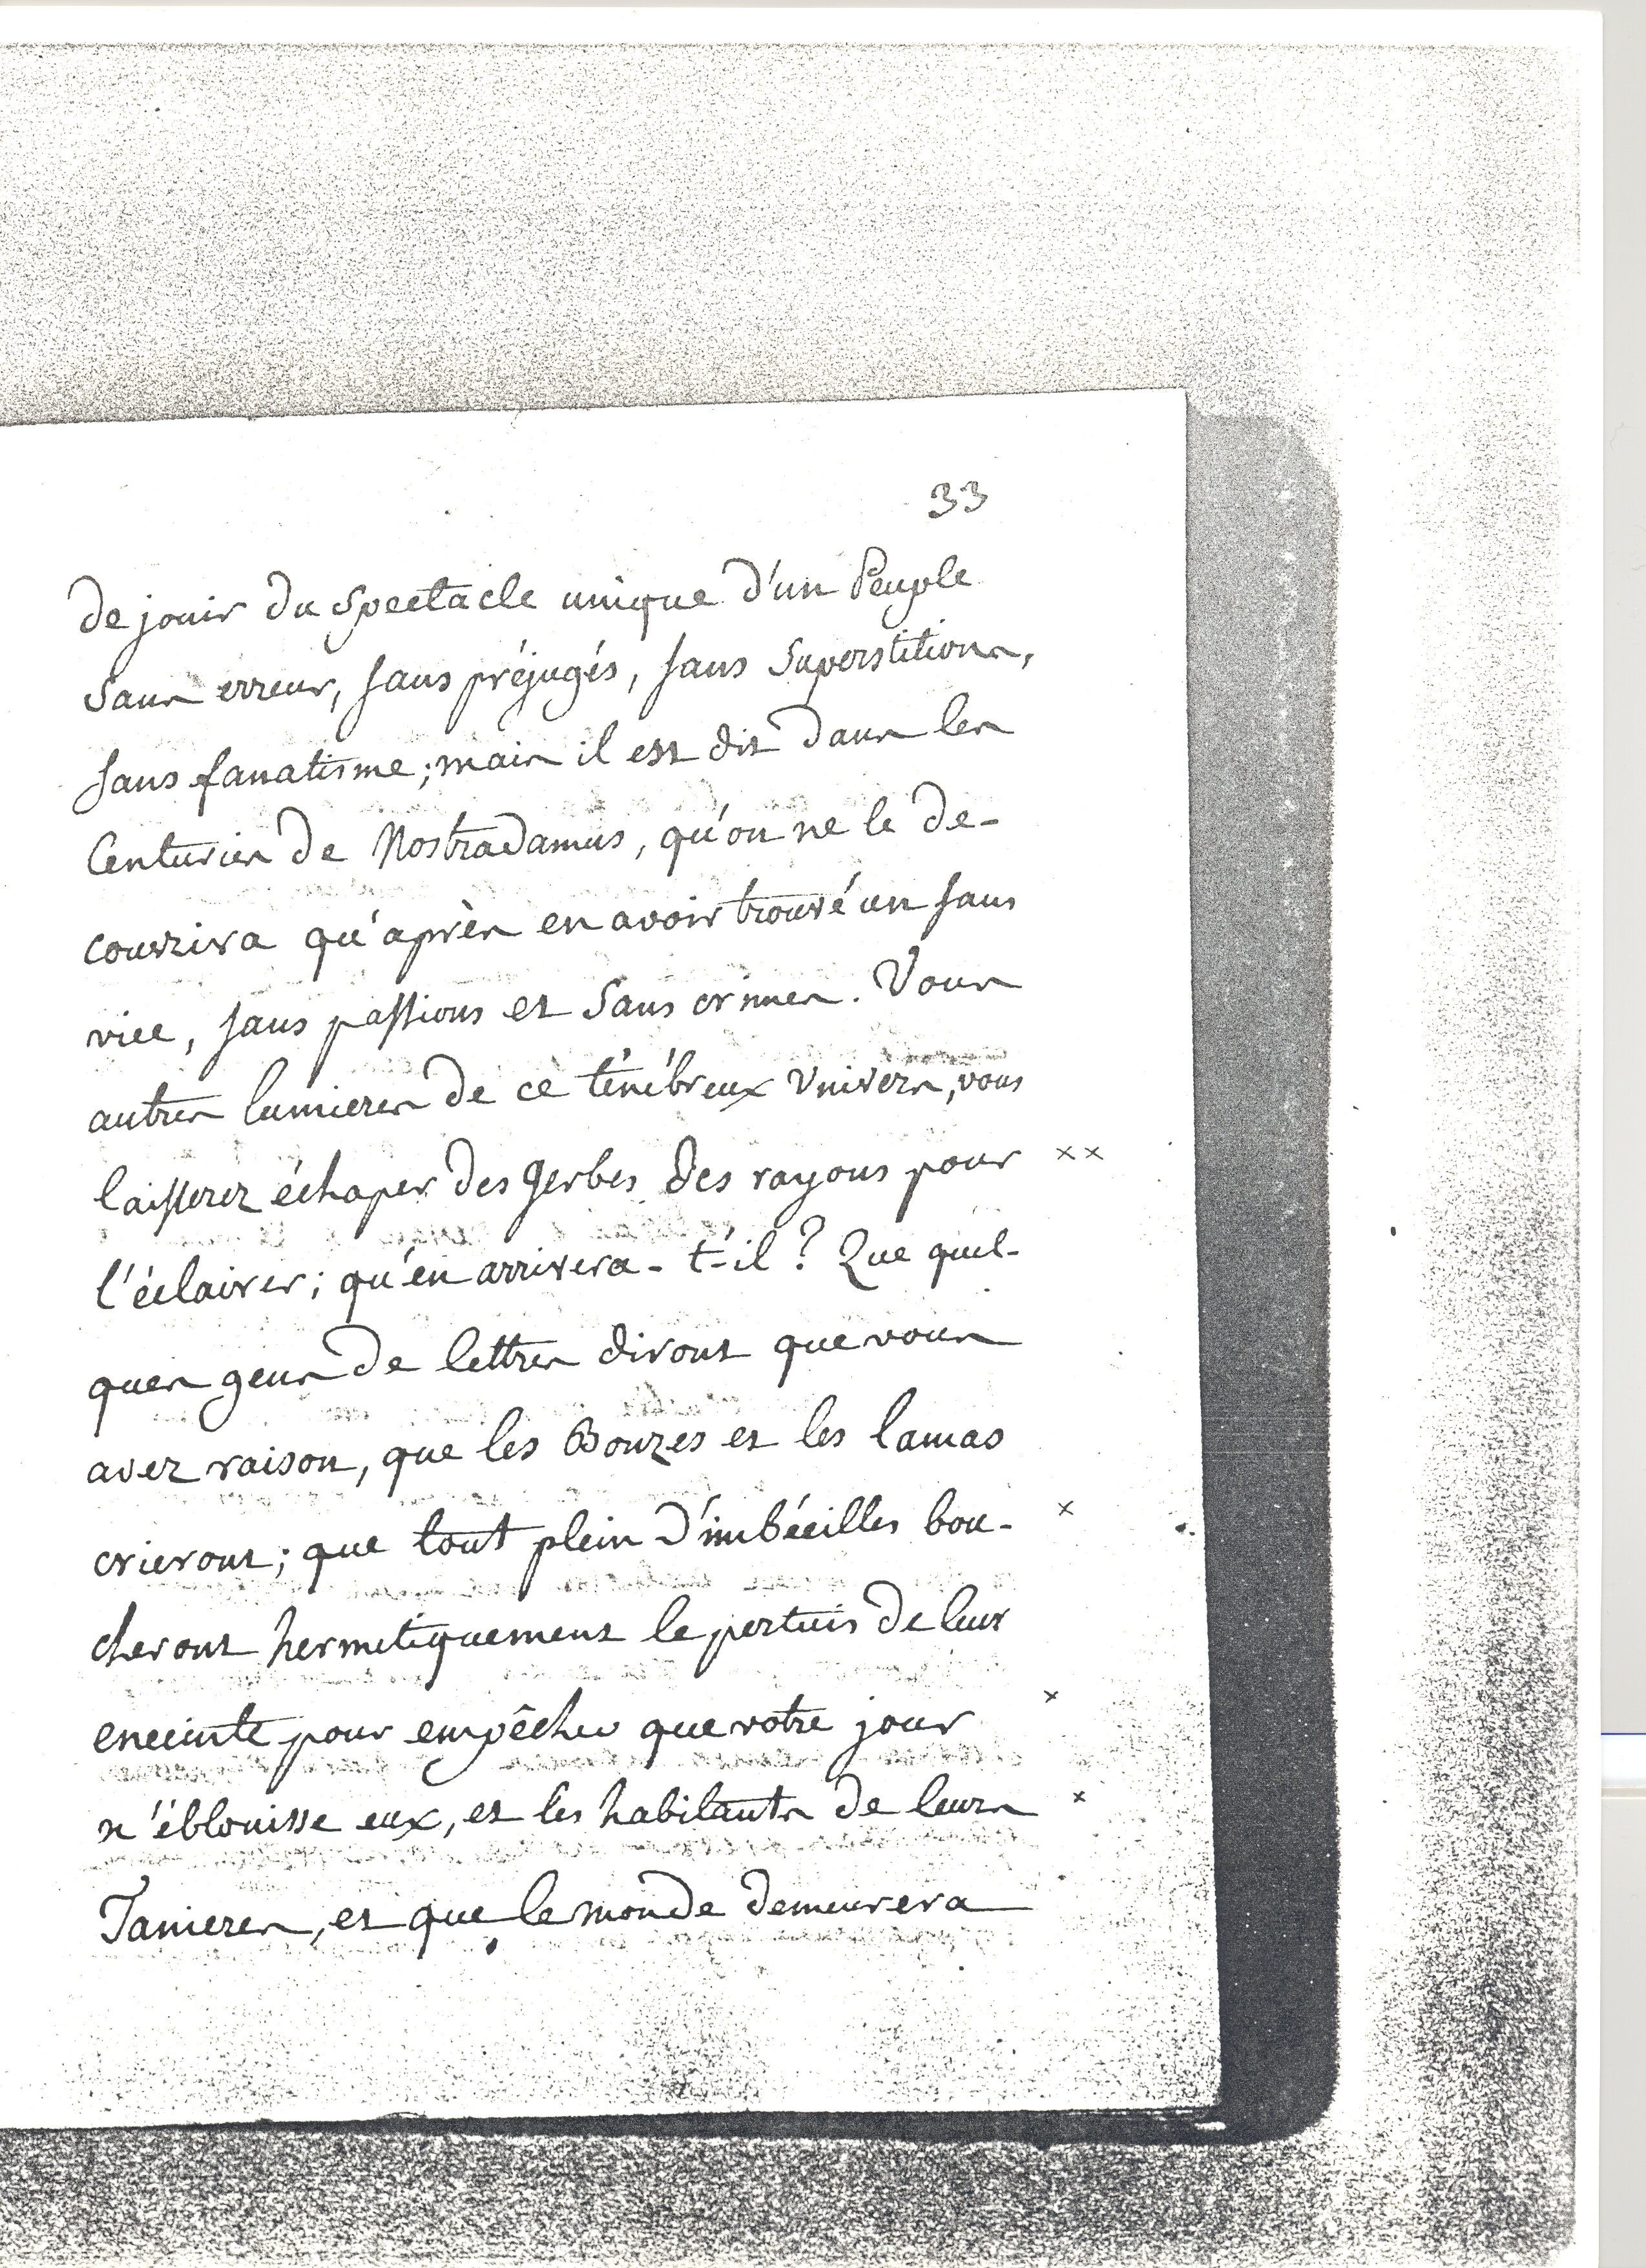 33
de jouir du Spectacle unique d'un Peuple
Sans erreur, sans préjugés, sans Superstitions,
sans fanatisme; mais il est dit dans les
Centuries de Nostradamus, qu'on ne le de-
couvrira qu'après en avoir trouvé un sans
vice, sans passions et Sans crimes. Vous
autres lumieres de ce ténébreux Univers, vous
laisserez échaper des gerbes des rayons pour ××
l'éclairer; qu'en arrivera-t-il? Que quel-
ques gens de lettres diront que vous
avez raison, que les Bonzes et les lamas
crieront; que tout plein d'imbécilles bou- ×
cheront hermetiquement le pertuis de leur
enceinte pour empêcher que votre jour ×
n'éblouisse eux, et les habitants de leurs ×
Tanieres, et que le monde demeurera